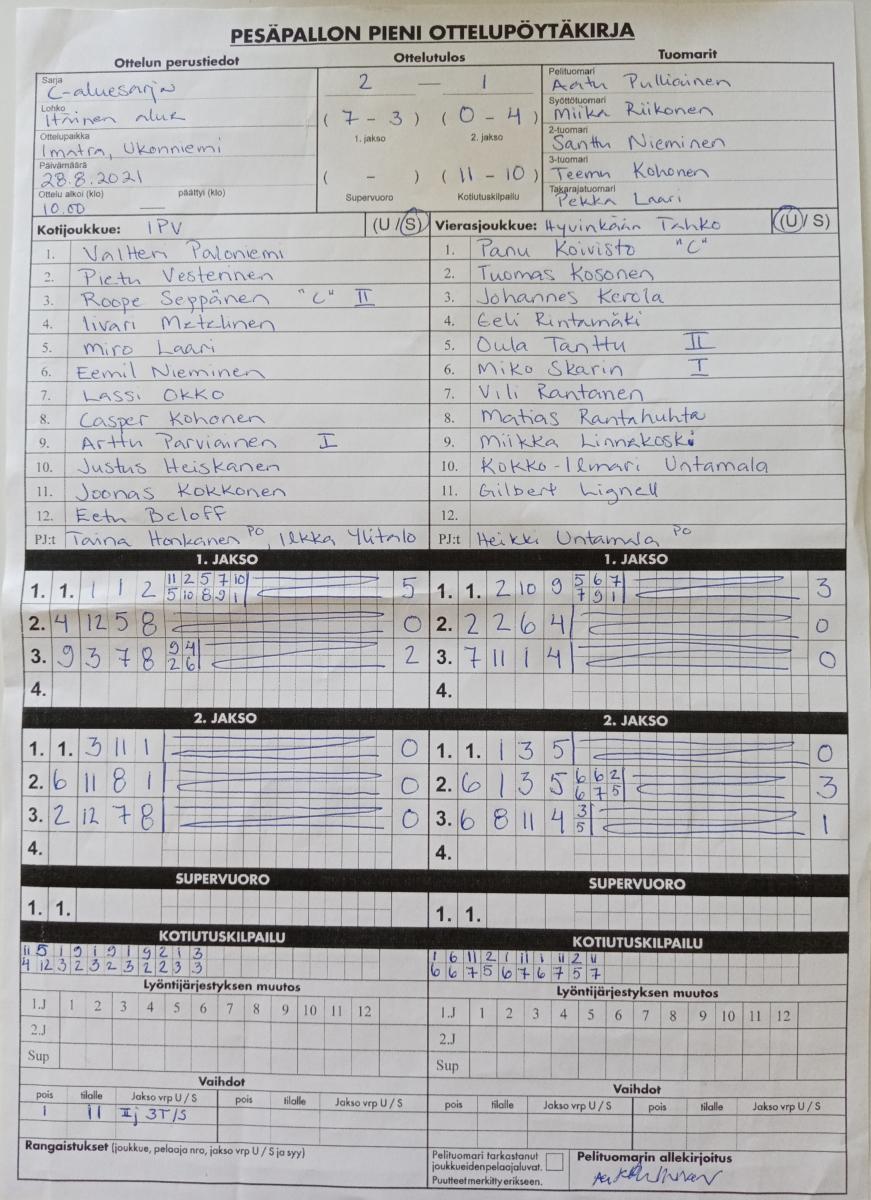 PESÄPALLON PIENI OTTELUPÖYTÄKIRJA
Ottelun perustiedot Ottelutulos Tuomarit
Sarja C-aluesarja 2 — 1 Pelituomari Aatu Pulliainen
Lohko Itäinen alue ( 7 - 3 ) ( 0 - 4 ) Syöttötuomari Miika Riikonen
Ottelupaikka Imatra, Ukonniemi 1. jakso 2. jakso 2-tuomari Santtu Nieminen
Päivämäärä 28.8.2021 ( - ) ( 11 - 10 ) 3-tuomari Teemu Kohonen
Ottelu alkoi (klo) 10.00 päättyi (klo) — Supervuoro Kotiutuskilpailu Takarajatuomari Pekka Laari
Kotijoukkue: IPV (U / S) Vierasjoukkue: Hyvinkään Tahko (U / S)
1. Valtteri Paloniemi 1. Panu Koivisto "C"
2. Pietu Vesterinen 2. Tuomas Kosonen
3. Roope Seppänen "C" II 3. Johannes Kerola
4. Iivari Metelinen 4. Eeli Rintamäki
5. Miro Laari 5. Oula Tanttu II
6. Eemil Nieminen 6. Miko Skarin I
7. Lassi Okko 7. Vili Rantanen
8. Casper Kohonen 8. Matias Rantahuhta
9. Arttu Parviainen I 9. Miikka Linnakoski
10. Justus Heiskanen 10. Kokko-Ilmari Untamala
11. Joonas Kokkonen 11. Gilbert Lignell
12. Eetu Beloff 12.
PJ:t Taina Honkanen PO, Ilkka Ylitalo PJ:t Heikki Untamala PO
1. JAKSO 1. JAKSO
1. 1. 1 1 2 11 2 5 7 10 5 1. 1. 2 10 9 5 6 7 3
5 10 8 9 1 7 9 1
2. 4 12 5 8 0 2. 2 2 6 4 0
3. 9 3 7 8 9 4 2 3. 7 11 1 4 0
2 6
4. 4.
2. JAKSO 2. JAKSO
1. 1. 3 11 1 0 1. 1. 1 3 5 0
2. 6 11 8 1 0 2. 6 1 3 5 6 6 2 3
6 7 5
3. 2 12 7 8 0 3. 6 8 11 4 3 1
5
4. 4.
SUPERVUORO SUPERVUORO
1. 1. 1. 1.
KOTIUTUSKILPAILU KOTIUTUSKILPAILU
11 5 1 9 1 9 1 9 2 1 3 1 6 11 2 1 11 1 11 2 11
4 12 3 2 3 2 3 2 2 3 3 6 6 7 5 6 7 6 7 5 7
Lyöntijärjestyksen muutos Lyöntijärjestyksen muutos
1.J 1 2 3 4 5 6 7 8 9 10 11 12 1.J 1 2 3 4 5 6 7 8 9 10 11 12
2.J 2.J
Sup Sup
Vaihdot Vaihdot
pois tilalle Jakso vrp U / S pois tilalle Jakso vrp U / S pois tilalle Jakso vrp U / S pois tilalle Jakso vrp U / S
1 11 IIj 3T/S
Rangaistukset (joukkue, pelaaja nro, jakso vrp U / S ja syy) Pelituomari tarkastanut joukkueiden pelaajaluvat. Puutteet merkitty erikseen. Pelituomarin allekirjoitus